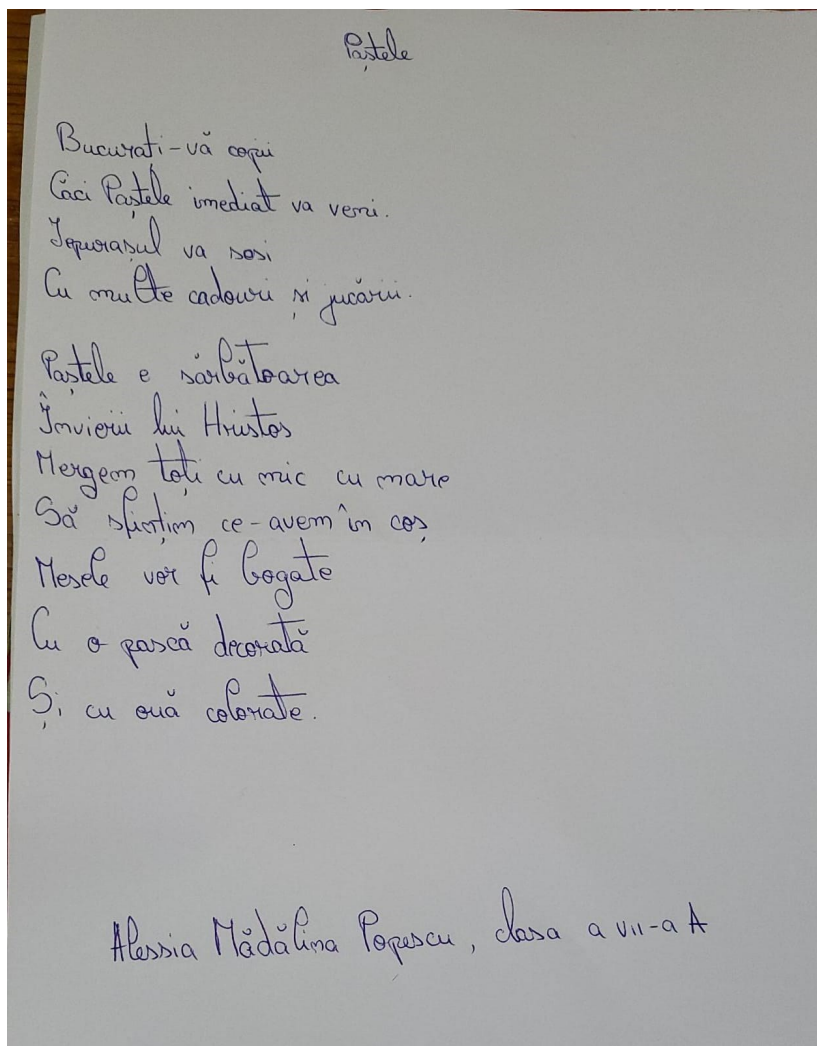 Paștele
Bucurati-vă copii
Căci Paștele imediat va veni.
Iepurasul va sosi
Cu multe cadouri și jucării.
Paștele e sărbătoarea
Învierii lui Hristos
Mergem toți cu mic cu mare
Să sfințim ce-avem în coș
Mesele vor fi bogate
Cu o pască decorată
Și cu ouă colorate.
Alessia Mădălina Popescu, clasa a VII-a A